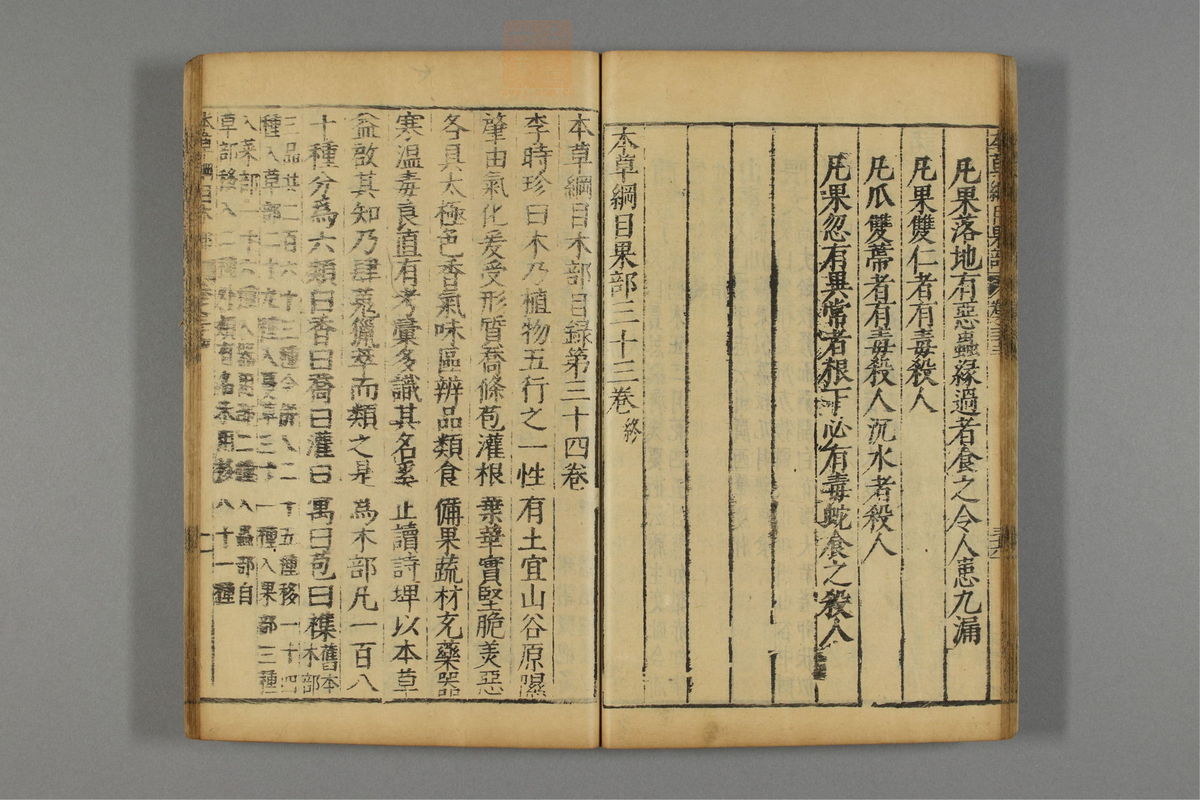 凡果落地有惡蟲緣過者食之令人患九漏
凡果雙仁者有毒殺人
凡瓜雙蒂者有毒殺人沉水者殺人
凡果忽有異常者根下必有毒蛇食之殺人
本草綱目果部三十三卷終
本草綱目木部目錄第三十四卷
李時珍曰木乃植物五行之一性有土宜山谷原隰
肇由氣化爰受形質喬條苞灌根葉華實堅脆美惡
各具太極色香氣味區辨品類食備果蔬材充藥器
寒溫毒良直有考彙多識其名奚止讀詩埤以本草
益啟其知乃肆蒐獵萃而類之是為木部凡一百八
十種分為六類曰香曰喬曰灌曰寓曰苞曰襍舊本木部
三品共二百六十三種今併入二十五種移一十四
種入草部二十九種入蔓草三十一種入果部三種
入菜部一十六種入器用部二種入蟲部自
草部移入二種外類有名未用移八十一種